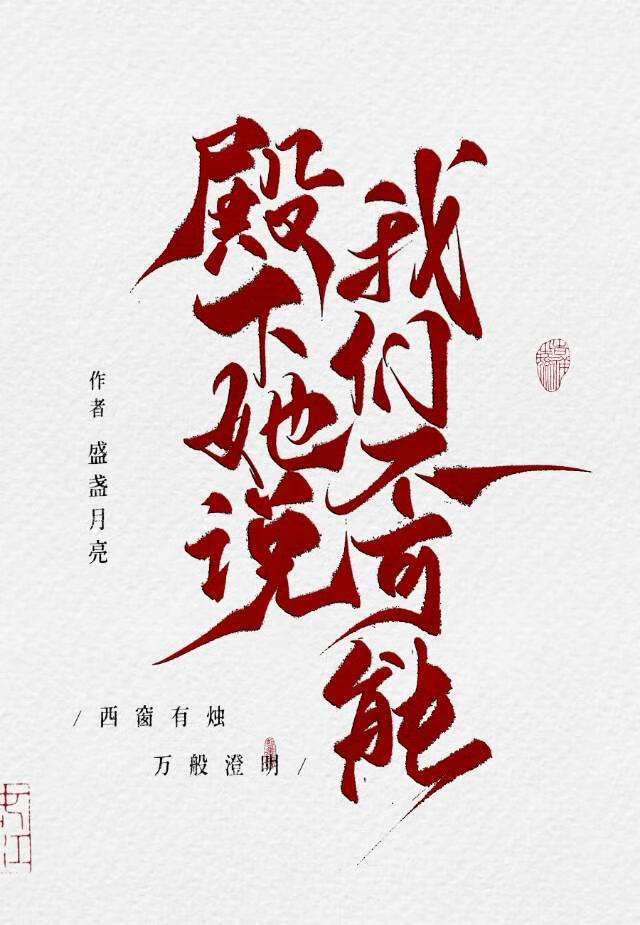 殿下她说
我们不可能
作者 盛盏月亮
/西窗有烛
万般澄明/